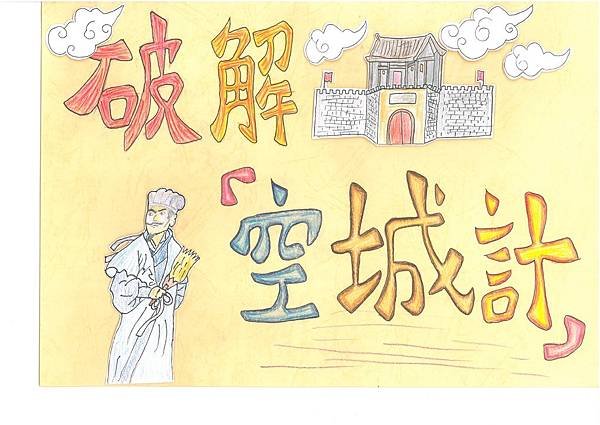 破解
「空城計」